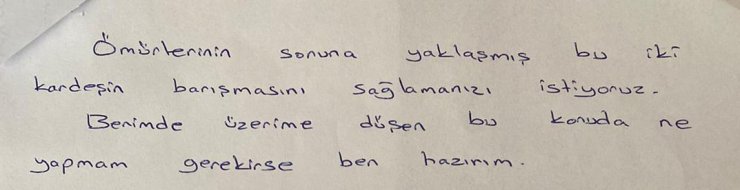 Ömürlerinin sonuna yaklaşmış bu iki
kardeşin barışmasını sağlamanızı istiyoruz.
Benimde üzerime düşen bu konuda ne
yapmam gerekirse ben hazırım.